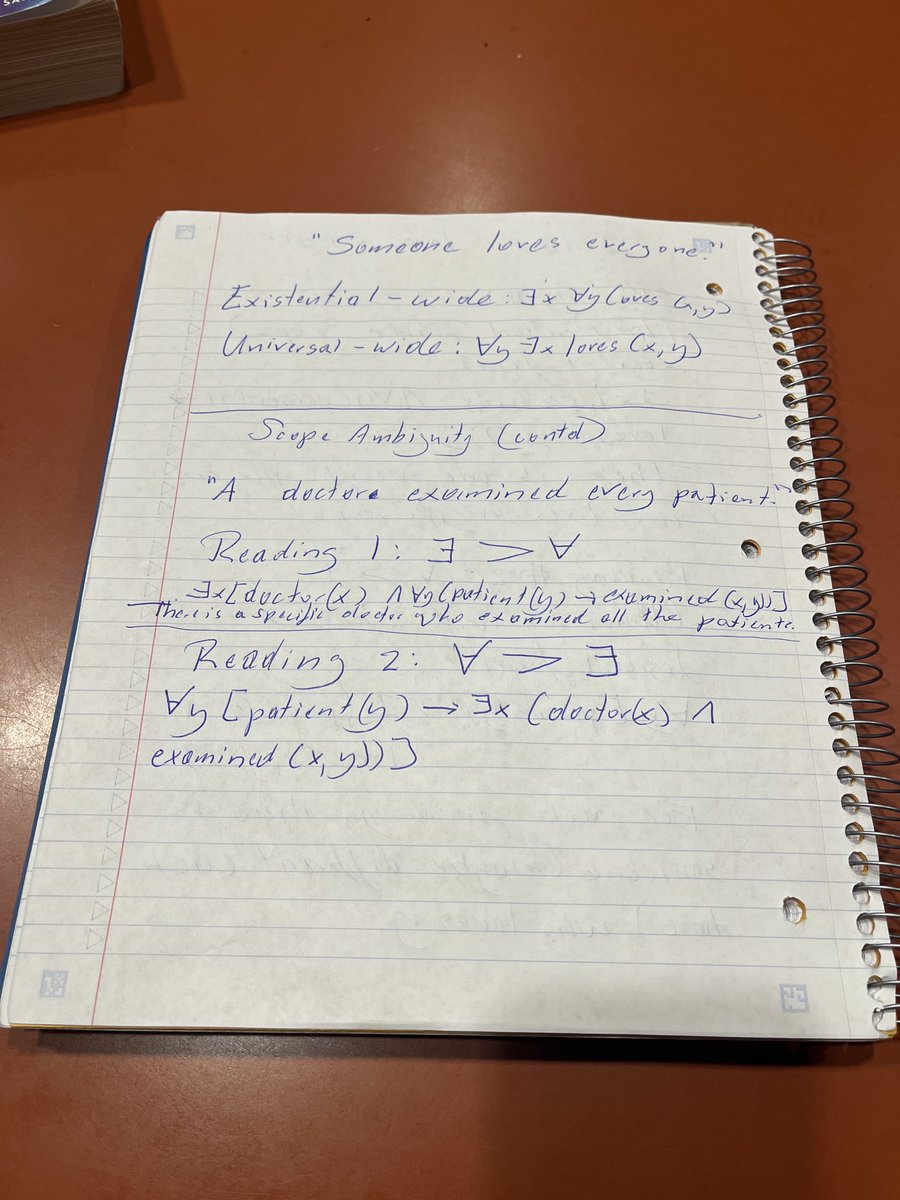 "Someone loves everyone."
Existential-wide: ∃x ∀y loves (x,y)
Universal-wide: ∀y ∃x loves (x,y)
Scope Ambiguity (contd)
"A doctore examined every patient."
Reading 1: ∃ > ∀
∃x[doctor(x) ∧ ∀y(patient(y) → examined(x,y))]
There is a specific doctor who examined all the patients.
Reading 2: ∀ > ∃
∀y [patient(y) → ∃x (doctor(x) ∧
examined (x,y))]